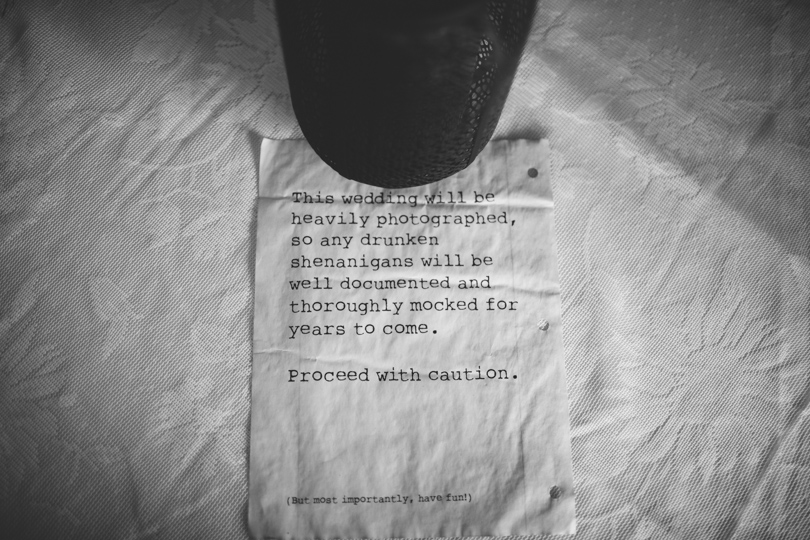 This wedding will be
heavily photographed,
so any drunken
shenanigans will be
well documented and
thoroughly mocked for
years to come.
Proceed with caution.
(But most importantly, have fun!)